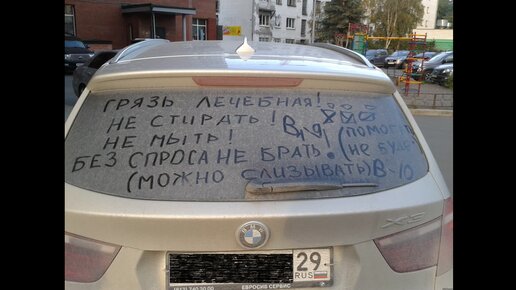 ГРЯЗЬ ЛЕЧЕБНАЯ!
НЕ СТИРАТЬ!
НЕ МЫТЬ!
(ПОМОГАТЬ НЕ БУДЕТ
БЕЗ СПРОСА НЕ БРАТЬ!
(МОЖНО СЛИЗЫВАТЬ) В-10
X3
BMW
29
RUS
ЕВРОСИБ СЕРВИС